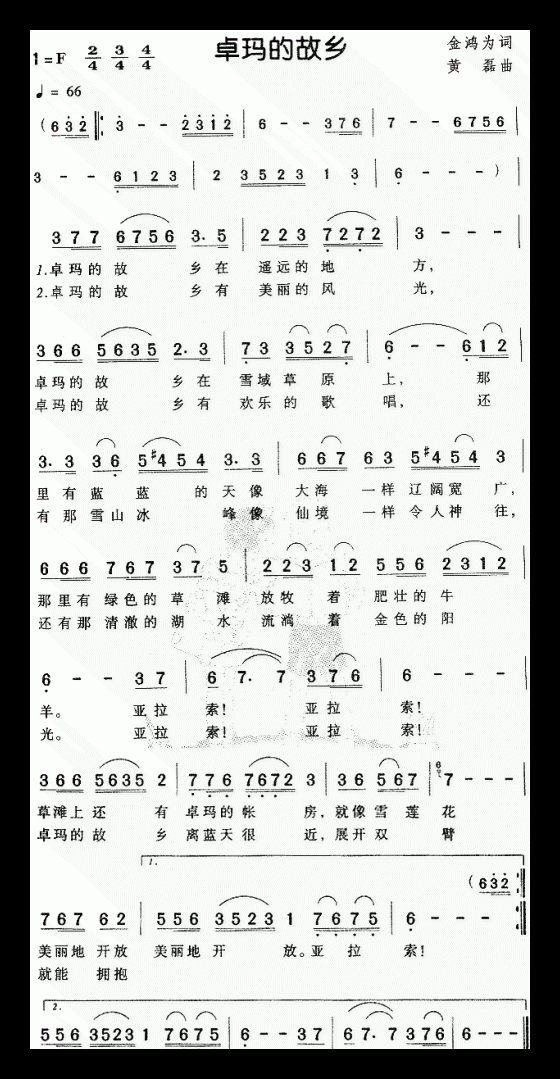 卓玛的故乡
金鸿为词
1=F 2/4 3/4 4/4
黄 磊曲
♩= 66
( 6 3 2 ‖: 3 - - 2 3 1 2 | 6 - - 3 7 6 | 7 - - 6 7 5 6 |
3 - - 6 1 2 3 | 2 3 5 2 3 1 3 | 6 - - - ) |
3 7 7 6 7 5 6 3. 5 | 2 2 3 7 2 7 2 | 3 - - -
1.卓玛的 故 乡在 遥远的 地 方,
2.卓玛的 故 乡有 美丽的 风 光,
3 6 6 5 6 3 5 2. 3 | 7 3 3 5 2 7 | 6 - - 6 1 2 |
卓玛的 故 乡在 雪域 草 原 上, 那
卓玛的 故 乡有 欢乐 的 歌 唱, 还
3. 3 3 6 5 #4 5 4 3. 3 | 6 6 7 6 3 5 #4 5 4 3 |
里 有 蓝 蓝 的 天像 大海 一样 辽阔宽 广,
有 那 雪山 冰 峰像 仙境 一样 令人神 往,
6 6 6 7 6 7 3 7 5 | 2 2 3 1 2 5 5 6 2 3 1 2 |
那里有 绿色的 草 滩 放牧 着 肥壮的 牛
还有那 清澈的 湖 水 流淌 着 金色的 阳
6 - - 3 7 | 6 7. 7 3 7 6 | 6 - - - |
羊。 亚拉 索! 亚拉 索!
光。 亚拉 索! 亚拉 索!
3 6 6 5 6 3 5 2 | 7 7 6 7 6 7 2 3 | 3 6 5 6 7 | 6 7 - - - |
草滩上还 有 卓玛的 帐 房,就像 雪 莲 花
卓玛的 故 乡 离蓝天 很 近,展开 双 臂
1.
( 6 3 2
7 6 7 6 2 | 5 5 6 3 5 2 3 1 7 6 7 5 | 6 - - - :‖
美丽地 开放 美丽地 开 放。亚 拉 索!
就能 拥抱
2.
5 5 6 3 5 2 3 1 7 6 7 5 | 6 - - 3 7 | 6 7. 7 3 7 6 | 6 - - - |